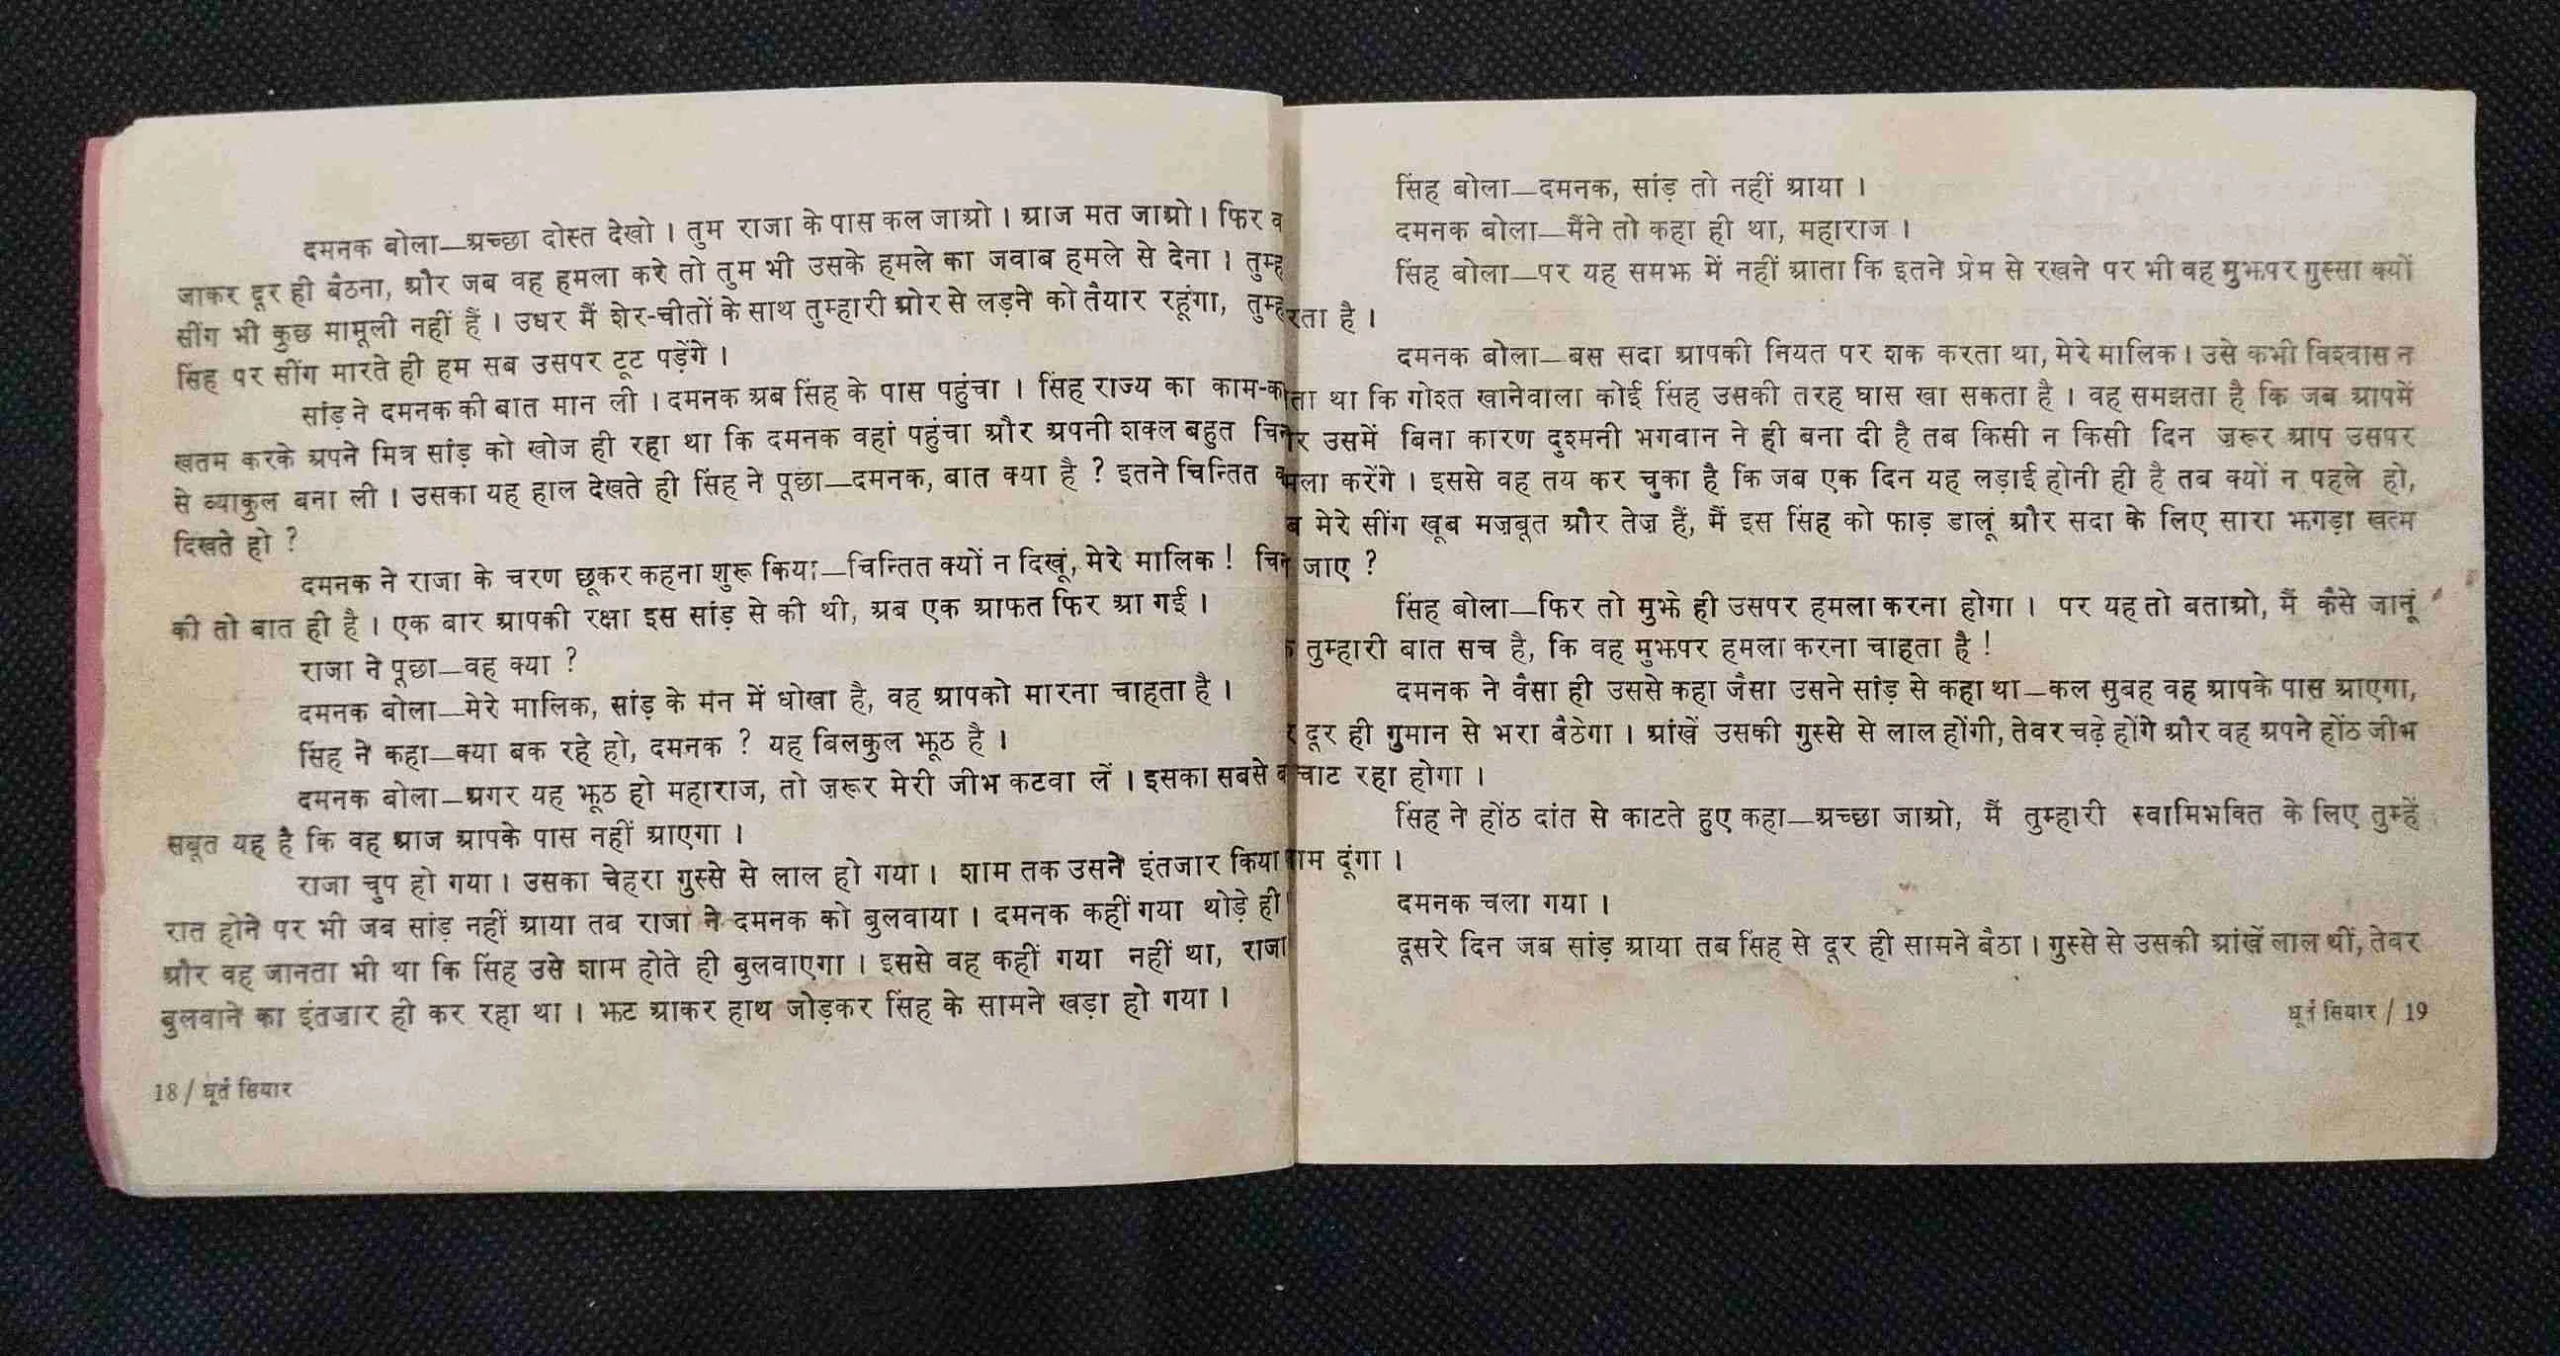 दमनक बोला—अच्छा दोस्त देखो । तुम राजा के पास कल जाओ । आज मत जाओ । फिर
जाकर दूर ही बैठना, और जब वह हमला करे तो तुम भी उसके हमले का जवाब हमले से देना ।
सींग भी कुछ मामूली नहीं हैं । उधर मैं शेर-चीतों के साथ तुम्हारी ओर से लड़ने को तैयार रहूंगा,
सिंह पर सींग मारते ही हम सब उसपर टूट पड़ेंगे ।
सांड़ ने दमनक की बात मान ली । दमनक अब सिंह के पास पहुंचा । सिंह राज्य का
खतम करके अपने मित्र सांड़ को खोज ही रहा था कि दमनक वहां पहुंचा और अपनी शक्ल बहुत
से व्याकुल बना ली । उसका यह हाल देखते ही सिंह ने पूछा—दमनक, बात क्या है ? इतने चिन्तित
दिखते हो ?
दमनक ने राजा के चरण छूकर कहना शुरू किया—चिन्तित क्यों न दिखूं, मेरे मालिक !
की तो बात ही है । एक बार आपकी रक्षा इस सांड़ से की थी, अब एक आफत फिर आ गई ।
राजा ने पूछा—वह क्या ?
दमनक बोला—मेरे मालिक, सांड़ के मन में धोखा है, वह आपको मारना चाहता है ।
सिंह ने कहा—क्या बक रहे हो, दमनक ? यह बिलकुल झूठ है ।
दमनक बोला—अगर यह झूठ हो महाराज, तो ज़रूर मेरी जीभ कटवा लें । इसका सबसे
सबूत यह है कि वह आज आपके पास नहीं आएगा ।
राजा चुप हो गया । उसका चेहरा गुस्से से लाल हो गया । शाम तक उसने इंतजार किया
रात होने पर भी जब सांड़ नहीं आया तब राजा ने दमनक को बुलवाया । दमनक कहीं गया थोड़े ही
और वह जानता भी था कि सिंह उसे शाम होते ही बुलवाएगा । इससे वह कहीं गया नहीं था, राजा
बुलवाने का इंतज़ार ही कर रहा था । झट आकर हाथ जोड़कर सिंह के सामने खड़ा हो गया ।
18 / धूर्त सियार
सिंह बोला—दमनक, सांड़ तो नहीं आया ।
दमनक बोला—मैंने तो कहा ही था, महाराज ।
सिंह बोला—पर यह समझ में नहीं आता कि इतने प्रेम से रखने पर भी वह मुझपर गुस्सा क्यों
है ।
दमनक बोला—बस सदा आपकी नियत पर शक करता था, मेरे मालिक । उसे कभी विश्वास न
था कि गोश्त खानेवाला कोई सिंह उसकी तरह घास खा सकता है । वह समझता है कि जब आपमें
उसमें बिना कारण दुश्मनी भगवान ने ही बना दी है तब किसी न किसी दिन ज़रूर आप उसपर
करेंगे । इससे वह तय कर चुका है कि जब एक दिन यह लड़ाई होनी ही है तब क्यों न पहले हो,
मेरे सींग खूब मज़बूत और तेज़ हैं, मैं इस सिंह को फाड़ डालूं और सदा के लिए सारा झगड़ा खत्म
जाए ?
सिंह बोला—फिर तो मुझे ही उसपर हमला करना होगा । पर यह तो बताओ, मैं कैसे जानूं
तुम्हारी बात सच है, कि वह मुझपर हमला करना चाहता है !
दमनक ने वैसा ही उससे कहा जैसा उसने सांड़ से कहा था—कल सुबह वह आपके पास आएगा,
दूर ही गुमान से भरा बैठेगा । आंखें उसकी गुस्से से लाल होंगी, तेवर चढ़े होंगे और वह अपने होंठ जीभ
चाट रहा होगा ।
सिंह ने होंठ दांत से काटते हुए कहा—अच्छा जाओ, मैं तुम्हारी स्वामिभक्ति के लिए तुम्हें
दूंगा ।
दमनक चला गया ।
दूसरे दिन जब सांड़ आया तब सिंह से दूर ही सामने बैठा । गुस्से से उसकी आंखें लाल थीं, तेवर
धूर्त सियार / 19